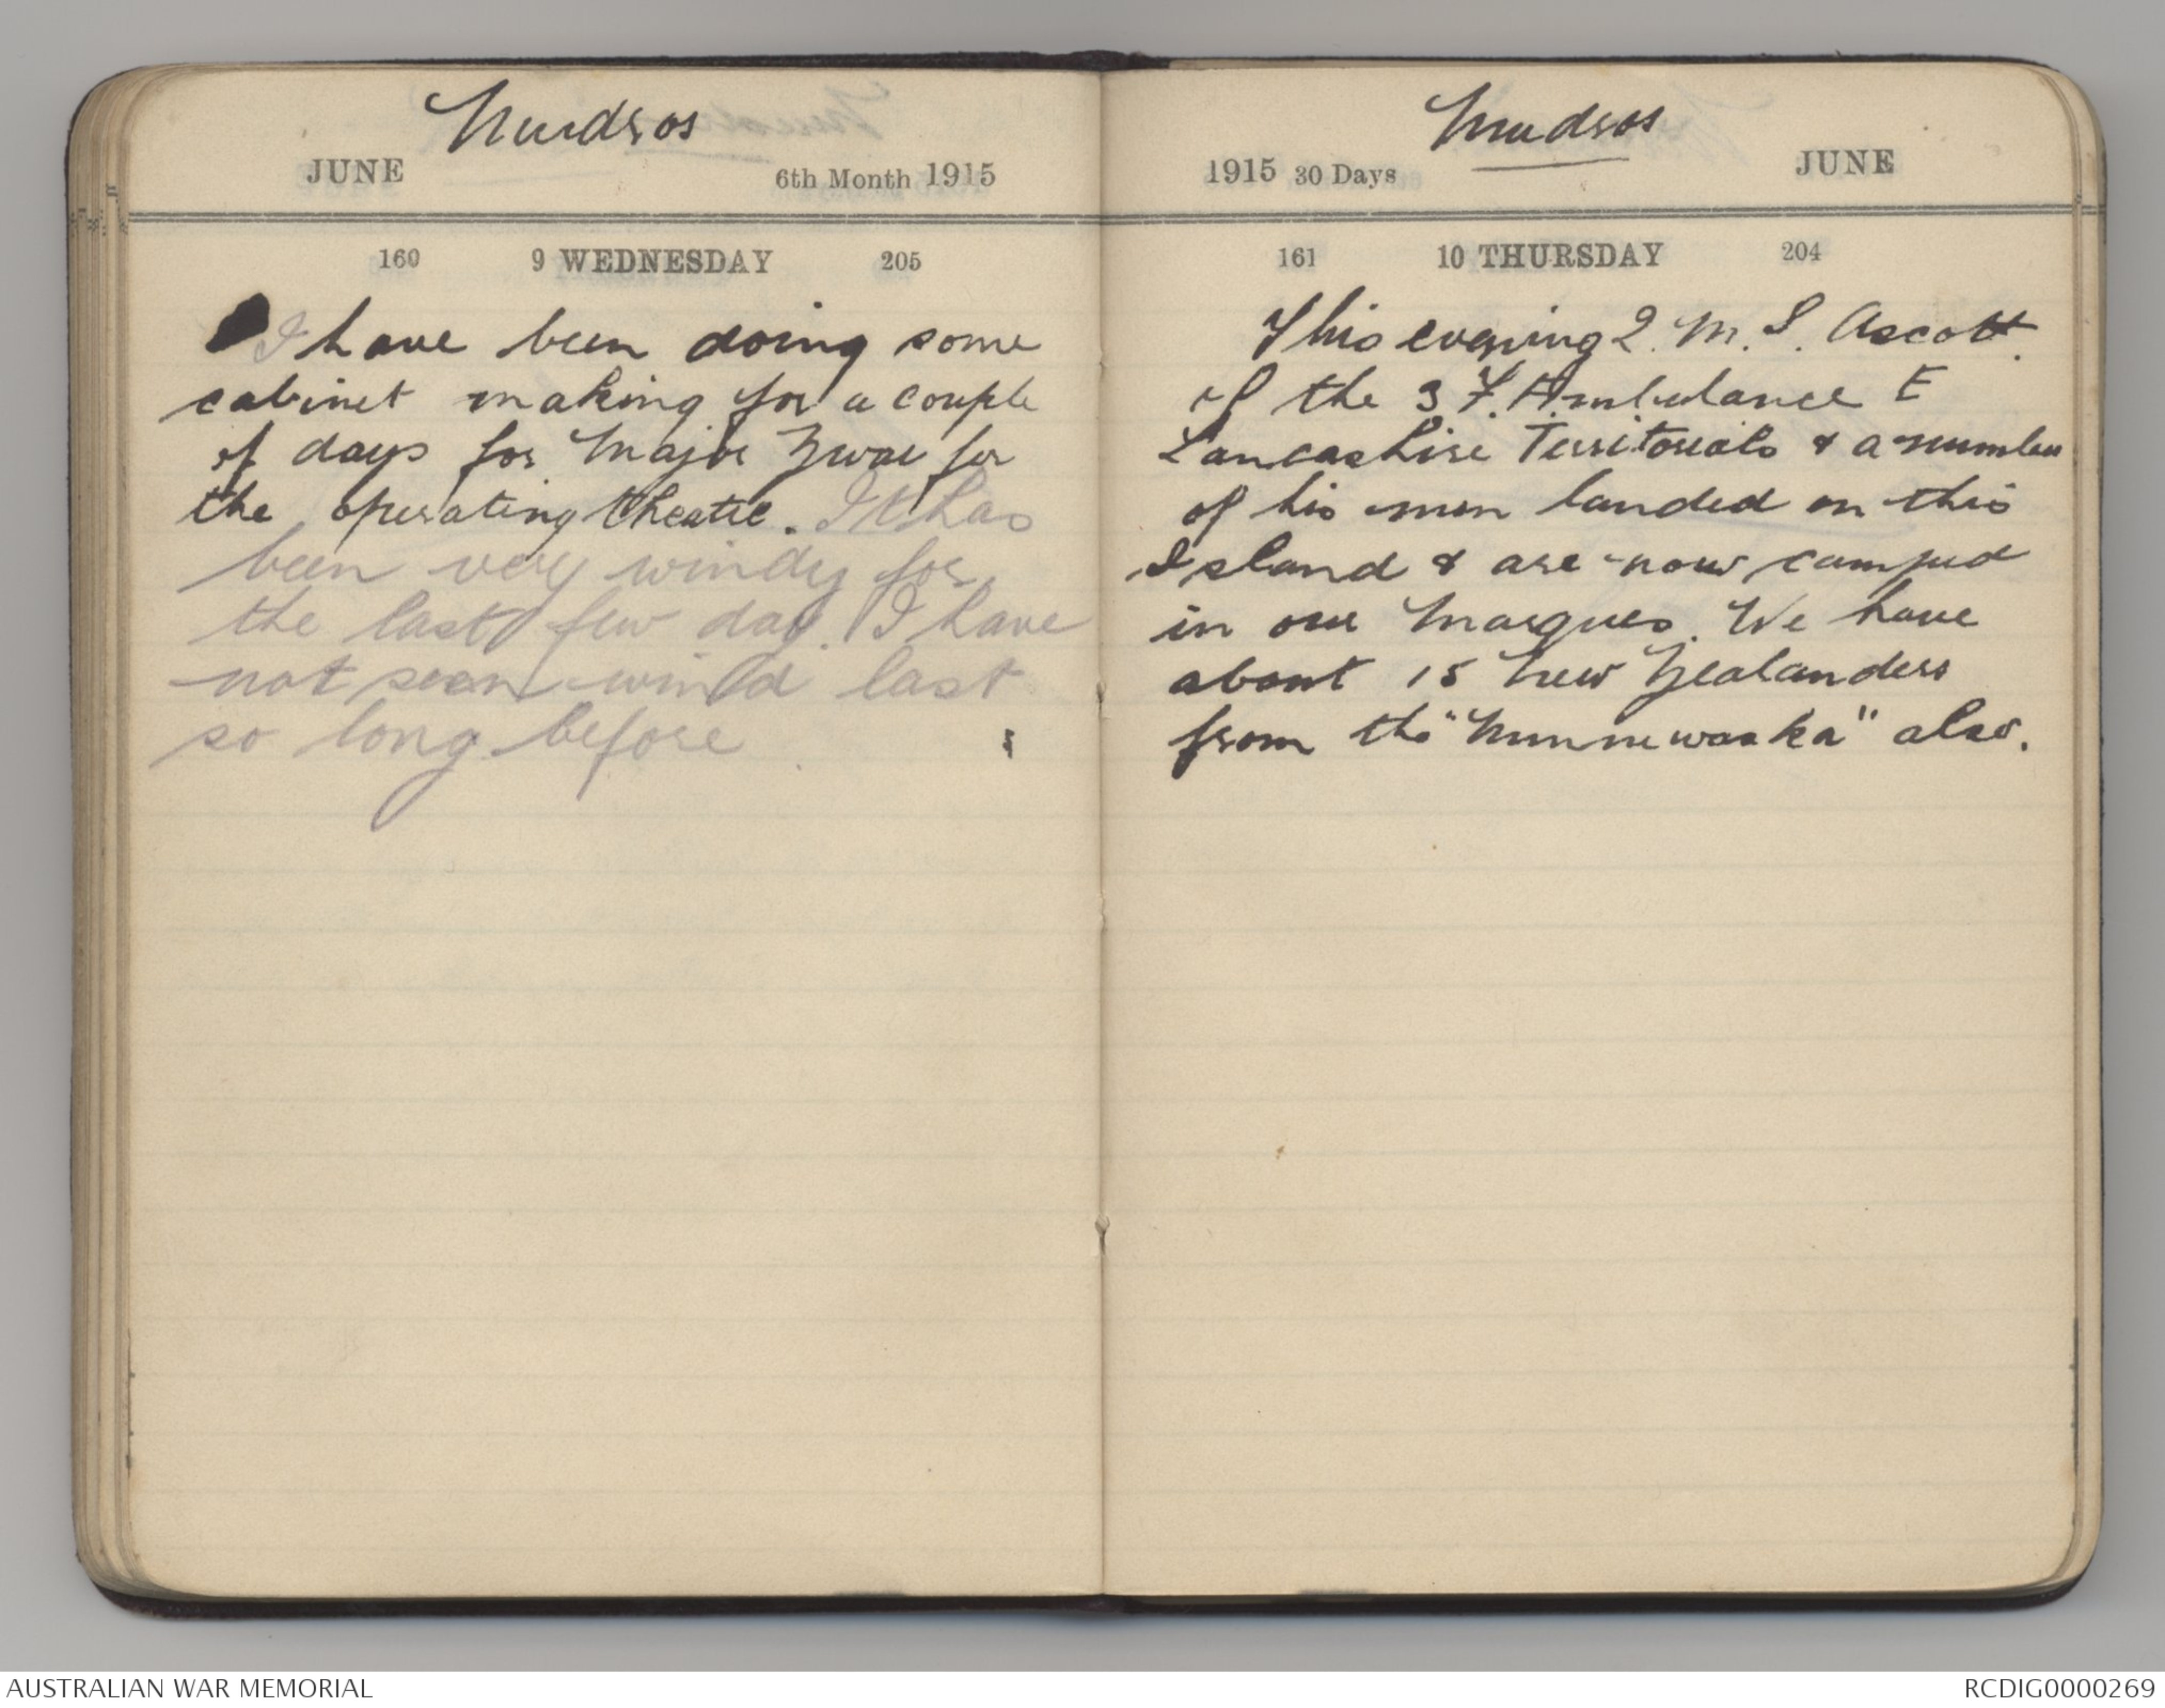 Mudros
JUNE 6th Month 1915
160 9 WEDNESDAY 205
I have been doing some
cabinet making for a couple
of days for Major Zwar for
the operating theatre. It has
been very windy for
the last few day. I have
not seen wind last
so long before
Mudros
1915 30 Days JUNE
161 10 THURSDAY 204
This evening Q.M.S. Ascott
of the 3 F. Ambulance E
Lancashire Territorials & a number
of his men landed on this
Island & are now camped
in our Marques. We have
about 15 New Zealanders
from the "Minnewaska" also.
AUSTRALIAN WAR MEMORIAL
RCDIG0000269